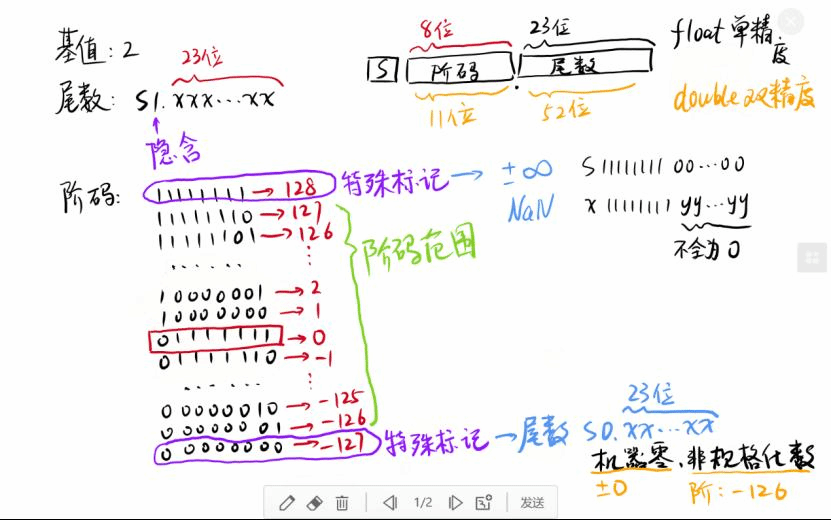 基值: 2
23位
尾数: S1.xxx...xx
隐含
8位 23位
S 阶码 . 尾数
11位 52位
float 单精度
double 双精度
阶码:
11111111 → 128 特殊标记 → ±∞ S 11111111 00...00
NaN X 11111111 yy...yy
不全为0
11111110 → 127
11111101 → 126
......
阶码范围
10000001 → 2
10000000 → 1
01111111 → 0
01111110 → -1
......
00000010 → -125
00000001 → -126
00000000 → -127 特殊标记 → 尾数 S0.xx...xx
23位
机器零、非规格化数
±0 阶: -126
1/2 发送